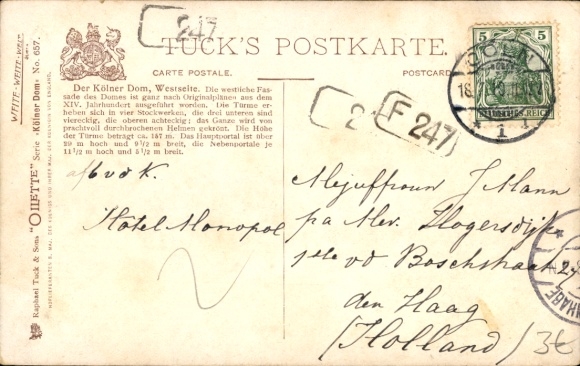 WEITE-WEITE-WELT
Raphael Tuck & Sons "OILETTE" Serie «Kölner Dom» No. 657.
247
TUCK'S POSTKARTE.
CARTE POSTALE.
POSTCARD
Der Kölner Dom, Westseite. Die westliche Fas-
sade des Domes ist ganz nach Originalplänen aus dem
XIV. Jahrhundert ausgeführt worden. Die Türme er-
heben sich in vier Stockwerken, die drei unteren sind
viereckig, die oberen achteckig; das Ganze wird von
prachtvoll durchbrochenen Helmen gekrönt. Die Höhe
der Türme beträgt ca. 157 m. Das Hauptportal ist über
29 m hoch und 9½ m breit, die Nebenportale je
11½ m hoch und 5½ m breit.
2
F 247
5 5
DEUTSCHES REICH
CÖLN
18.
* 1
a/b v d K.
Hôtel Monopol
2
Mejuffrouw J Mann
pa Mev. Hogersdijk
v d Boschstraat
den Haag
(Holland)
3€